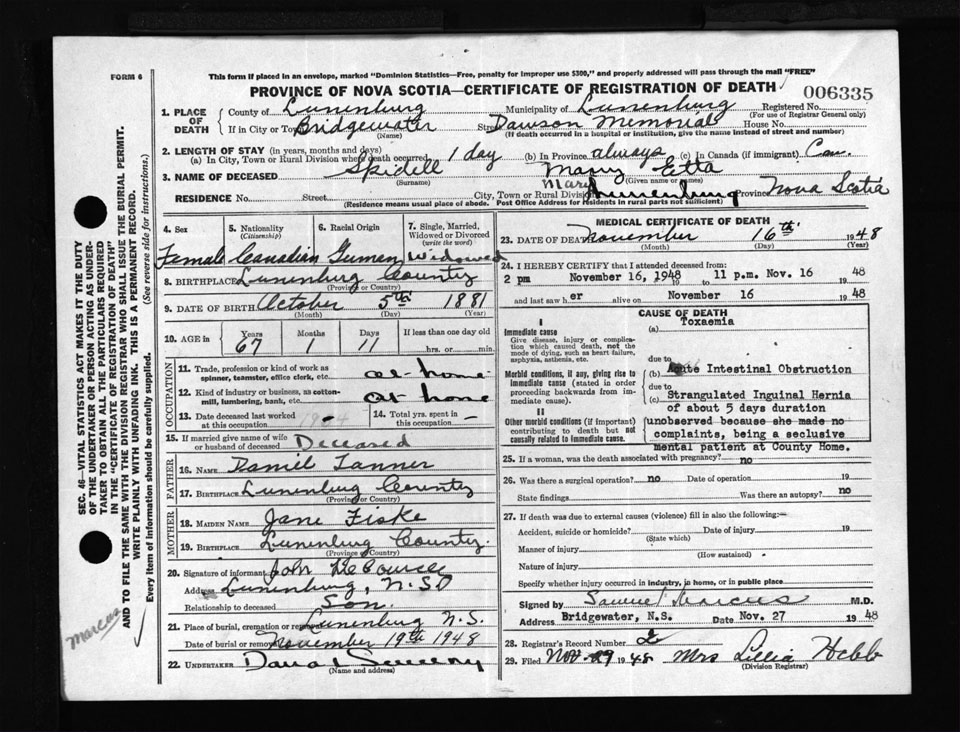 FORM 6
This form if placed in an envelope, marked "Dominion Statistics—Free, penalty for improper use $300," and properly addressed will pass through the mail "FREE"
PROVINCE OF NOVA SCOTIA—CERTIFICATE OF REGISTRATION OF DEATH
006335
1. PLACE OF DEATH
County of Lunenburg Municipality of Lunenburg Registered No.
(For use of Registrar General only)
If in City or Town Bridgewater Street Dawson Memorial House No.
(Name) (If death occurred in a hospital or institution, give the name instead of street and number)
2. LENGTH OF STAY (in years, months and days)
(a) In City, Town or Rural Division where death occurred 1 day (b) In Province always (c) In Canada (if immigrant) Can.
3. NAME OF DECEASED Spidell Mary Etta
(Surname) (Given name or names)
Mary
RESIDENCE No. Street City, Town or Rural Division Lunenburg Province Nova Scotia
(Residence means usual place of abode. Post Office Address for residents in rural parts not sufficient)
4. Sex
5. Nationality (Citizenship)
6. Racial Origin
7. Single, Married, Widowed or Divorced (write the word)
Female Canadian German Widowed
8. BIRTHPLACE Lunenburg County
(Province or Country)
9. DATE OF BIRTH October 5th 1881
(Month) (Day) (Year)
10. AGE in Years Months Days If less than one day
67 1 11 hrs. or min.
OCCUPATION
11. Trade, profession or kind of work as spinner, teamster, office clerk, etc. at home
12. Kind of industry or business, as cotton-mill, lumbering, bank, etc. at home
13. Date deceased last worked at this occupation
14. Total yrs. spent in -
15. If married give name of wife or husband of deceased Deceased
FATHER
16. NAME Daniel Tanner
17. BIRTHPLACE Lunenburg County
(Province or Country)
MOTHER
18. MAIDEN NAME Jane Fiske
19. BIRTHPLACE Lunenburg County.
(Province or Country)
20. Signature of informant John
Address Lunenburg, N.S.
Relationship to deceased Son.
21. Place of burial, cremation or removal Lunenburg N.S.
Date of burial or removal November 19th 1948
22. UNDERTAKER Sweeny
(Name and address)
MEDICAL CERTIFICATE OF DEATH
23. DATE OF DEATH November 16th 1948
(Month) (Day) (Year)
24. I HEREBY CERTIFY that I attended deceased from:
2 pm November 16, 1948 to 11 p.m. Nov. 16 1948
and last saw h er alive on November 16 1948
CAUSE OF DEATH
I
Immediate cause
Give disease, injury or complication which caused death, not the mode of dying, such as heart failure, asphyxia, asthenia, etc.
(a) Toxaemia
due to
Morbid conditions, if any, giving rise to immediate cause (stated in order proceeding backwards from immediate cause).
(b) Acute Intestinal Obstruction
due to
(c) Strangulated Inguinal Hernia
of about 5 days duration
II
Other morbid conditions (if important) contributing to death but not causally related to immediate cause.
unobserved because she made no
complaints, being a seclusive
mental patient at County Home.
25. If a woman, was the death associated with pregnancy? no
26. Was there a surgical operation? no Date of operation 19
State findings Was there an autopsy? no
27. If death was due to external causes (violence) fill in also the following:
Accident, suicide or homicide? Date of injury 19
(State which)
Manner of injury
(How sustained)
Nature of injury
Specify whether injury occurred in industry, in home, or in public place
Signed by Samuel Marcus M.D.
Address Bridgewater, N.S. Date Nov. 27 1948
28. Registrar's Record Number 2
29. Filed Nov. 29 1948 Mrs Lillia Hebb
(Division Registrar)
SEC. 46—VITAL STATISTICS ACT MAKES IT THE DUTY
OF THE UNDERTAKER OR PERSON ACTING AS UNDER-
TAKER TO OBTAIN ALL THE PARTICULARS REQUIRED
IN THE "CERTIFICATE OF REGISTRATION OF DEATH"
AND TO FILE THE SAME WITH THE DIVISION REGISTRAR WHO SHALL ISSUE THE BURIAL PERMIT.
WRITE PLAINLY WITH UNFADING INK. THIS IS A PERMANENT RECORD.
Every item of information should be carefully supplied. (See reverse side for instructions.)
Marcus